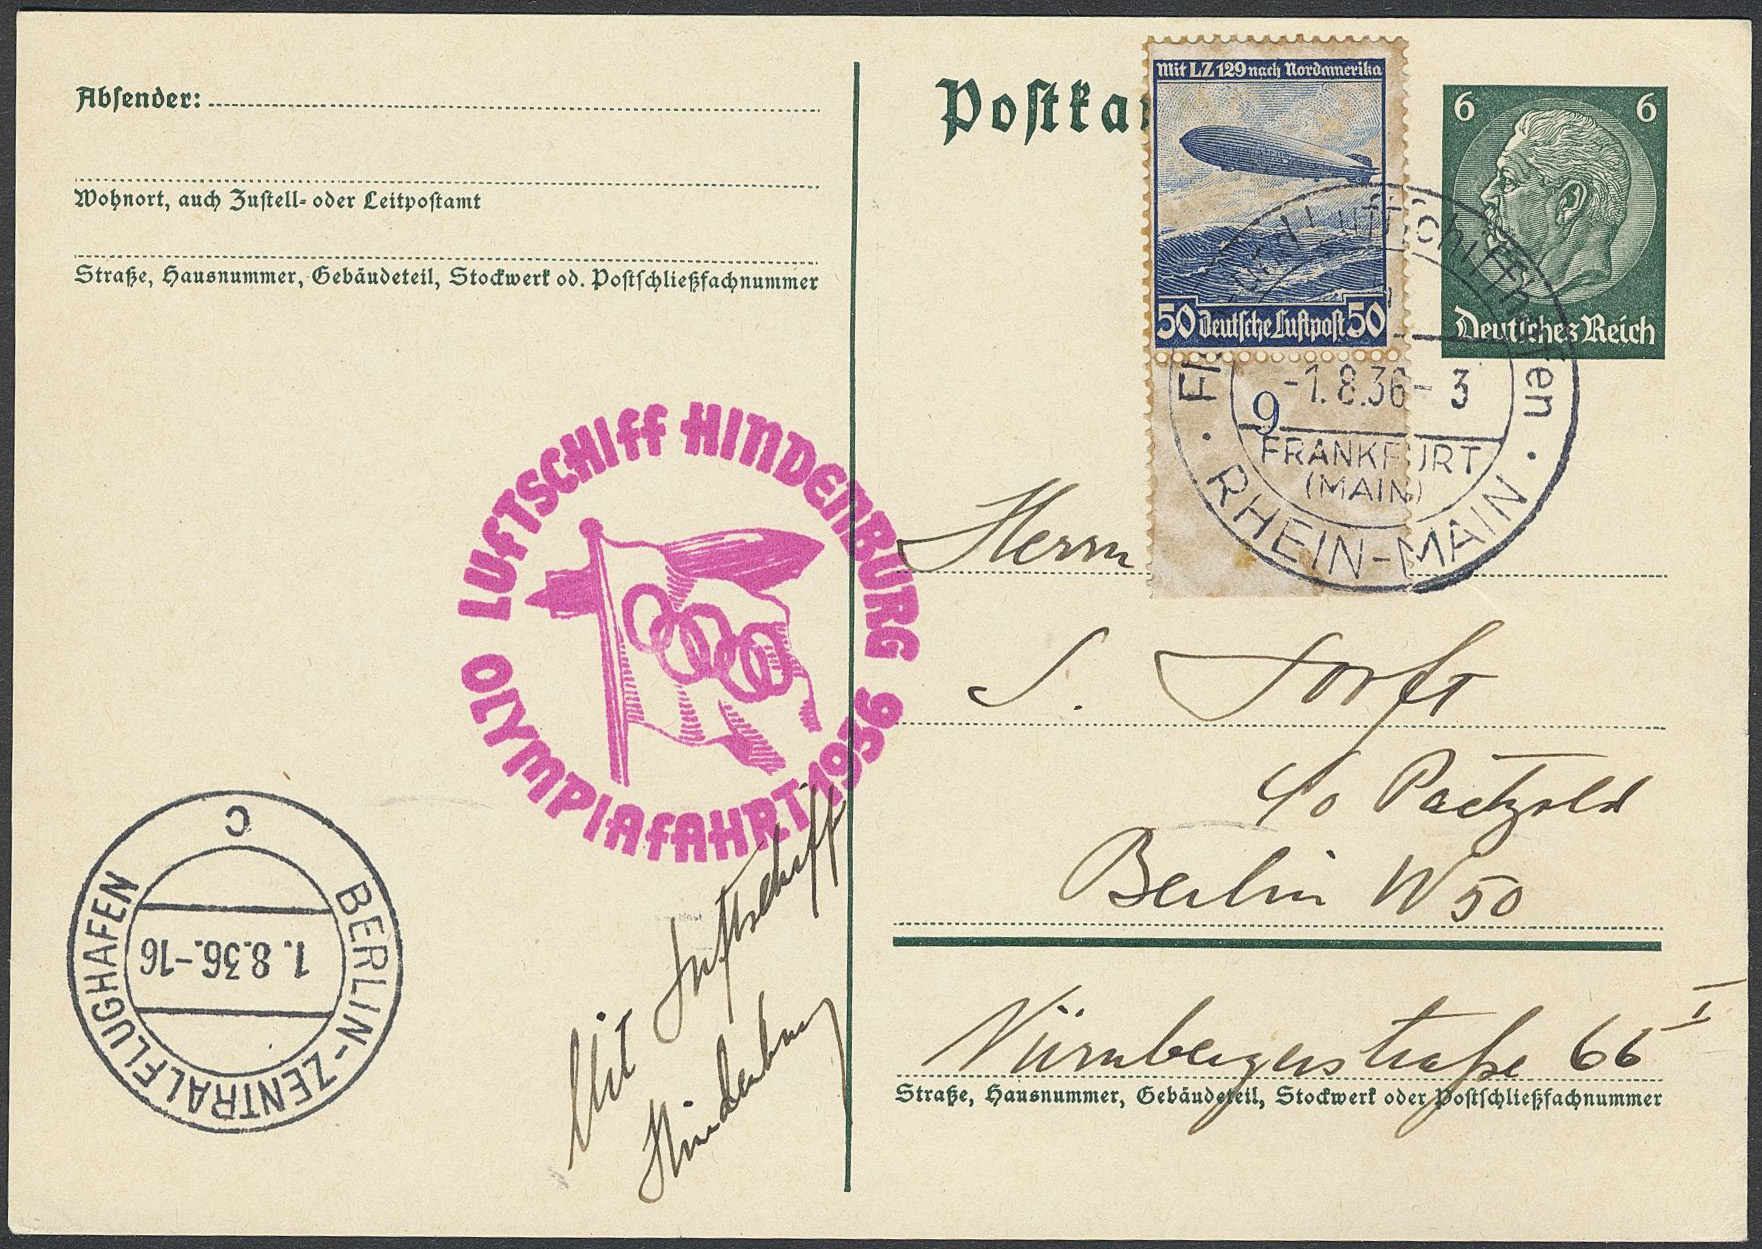 Absender:
Wohnort, auch Zustell- oder Leitpostamt
Straße, Hausnummer, Gebäudeteil, Stockwerk od. Postschließfachnummer
Postkar
Mit LZ 129 nach Nordamerika
50 Deutsche Luftpost 50
6 6
Deutsches Reich
Flug- und Luftschiffhafen
-1.8.36- 3
9
FRANKFURT
(MAIN)
· RHEIN-MAIN ·
LUFTSCHIFF HINDENBURG
OLYMPIAFAHRT 1936
Herrn
S.
c/o Paetzold
Berlin W 50
Nürnbergerstraße 66 I
Straße, Hausnummer, Gebäudeteil, Stockwerk oder Postschließfachnummer
Mit Luftschiff
Hindenburg
BERLIN-ZENTRALFLUGHAFEN
1.8.36.-16
C